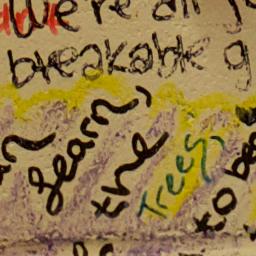 We're all j
breakable g
learn,
the
Trees,
to be